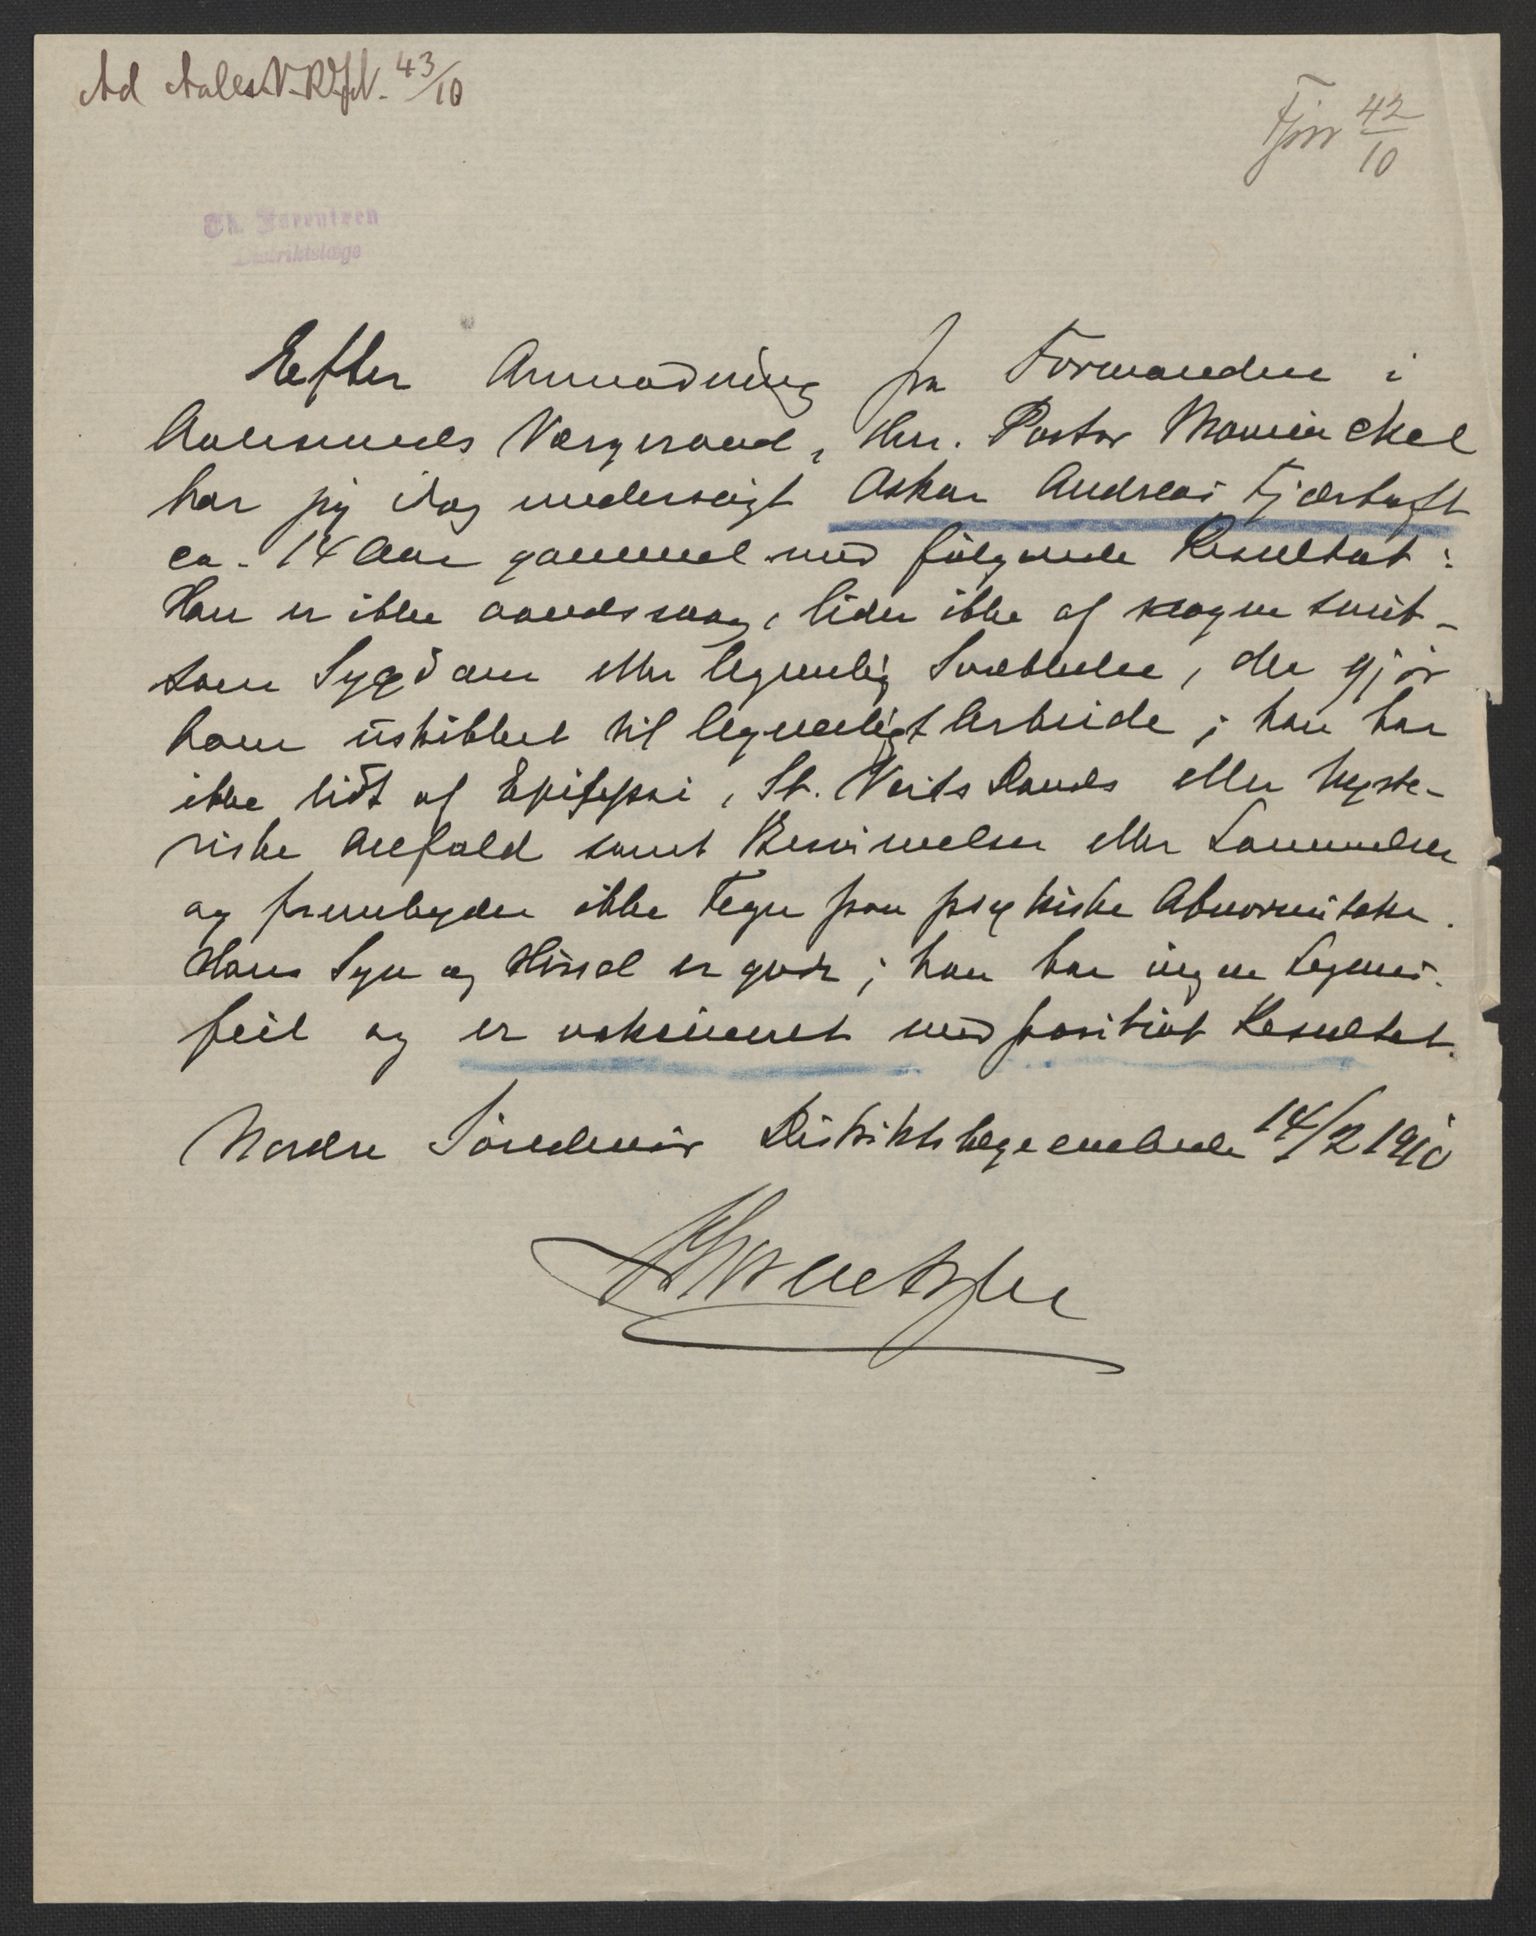 Ad Aales.V.R.J.N. 43/10
Fjør 42/10
Th. Lorentzen
Distriktslæge
Efter Anmodning fra Formanden i
Aalesunds Vergeraad, Hrr. Pastor Monninckel
har jeg idag undersøgt Oskar Andreas Fjørtoft
ca. 14 Aar gammel med følgende Resultat:
Han er ikke aandssvag, lider ikke af nogen smit-
som Sygdom eller legemlig Svækkelse, der gjør
ham uskikket til legemligt Arbeide; han har
ikke lidt af Epilepsi, St. Veits Dands eller hyste-
riske Anfald samt Besvimelser eller Lammelser
og frembyder ikke Tegn paa psykiske Abnormiteter.
Hans Syn og Hørsel er gode; han har ingen Legems-
feil og er vaksineret med positivt Resultat.
Nordre Søndmør Distriktslægeembede 14/2 1910
Th Lorentzen